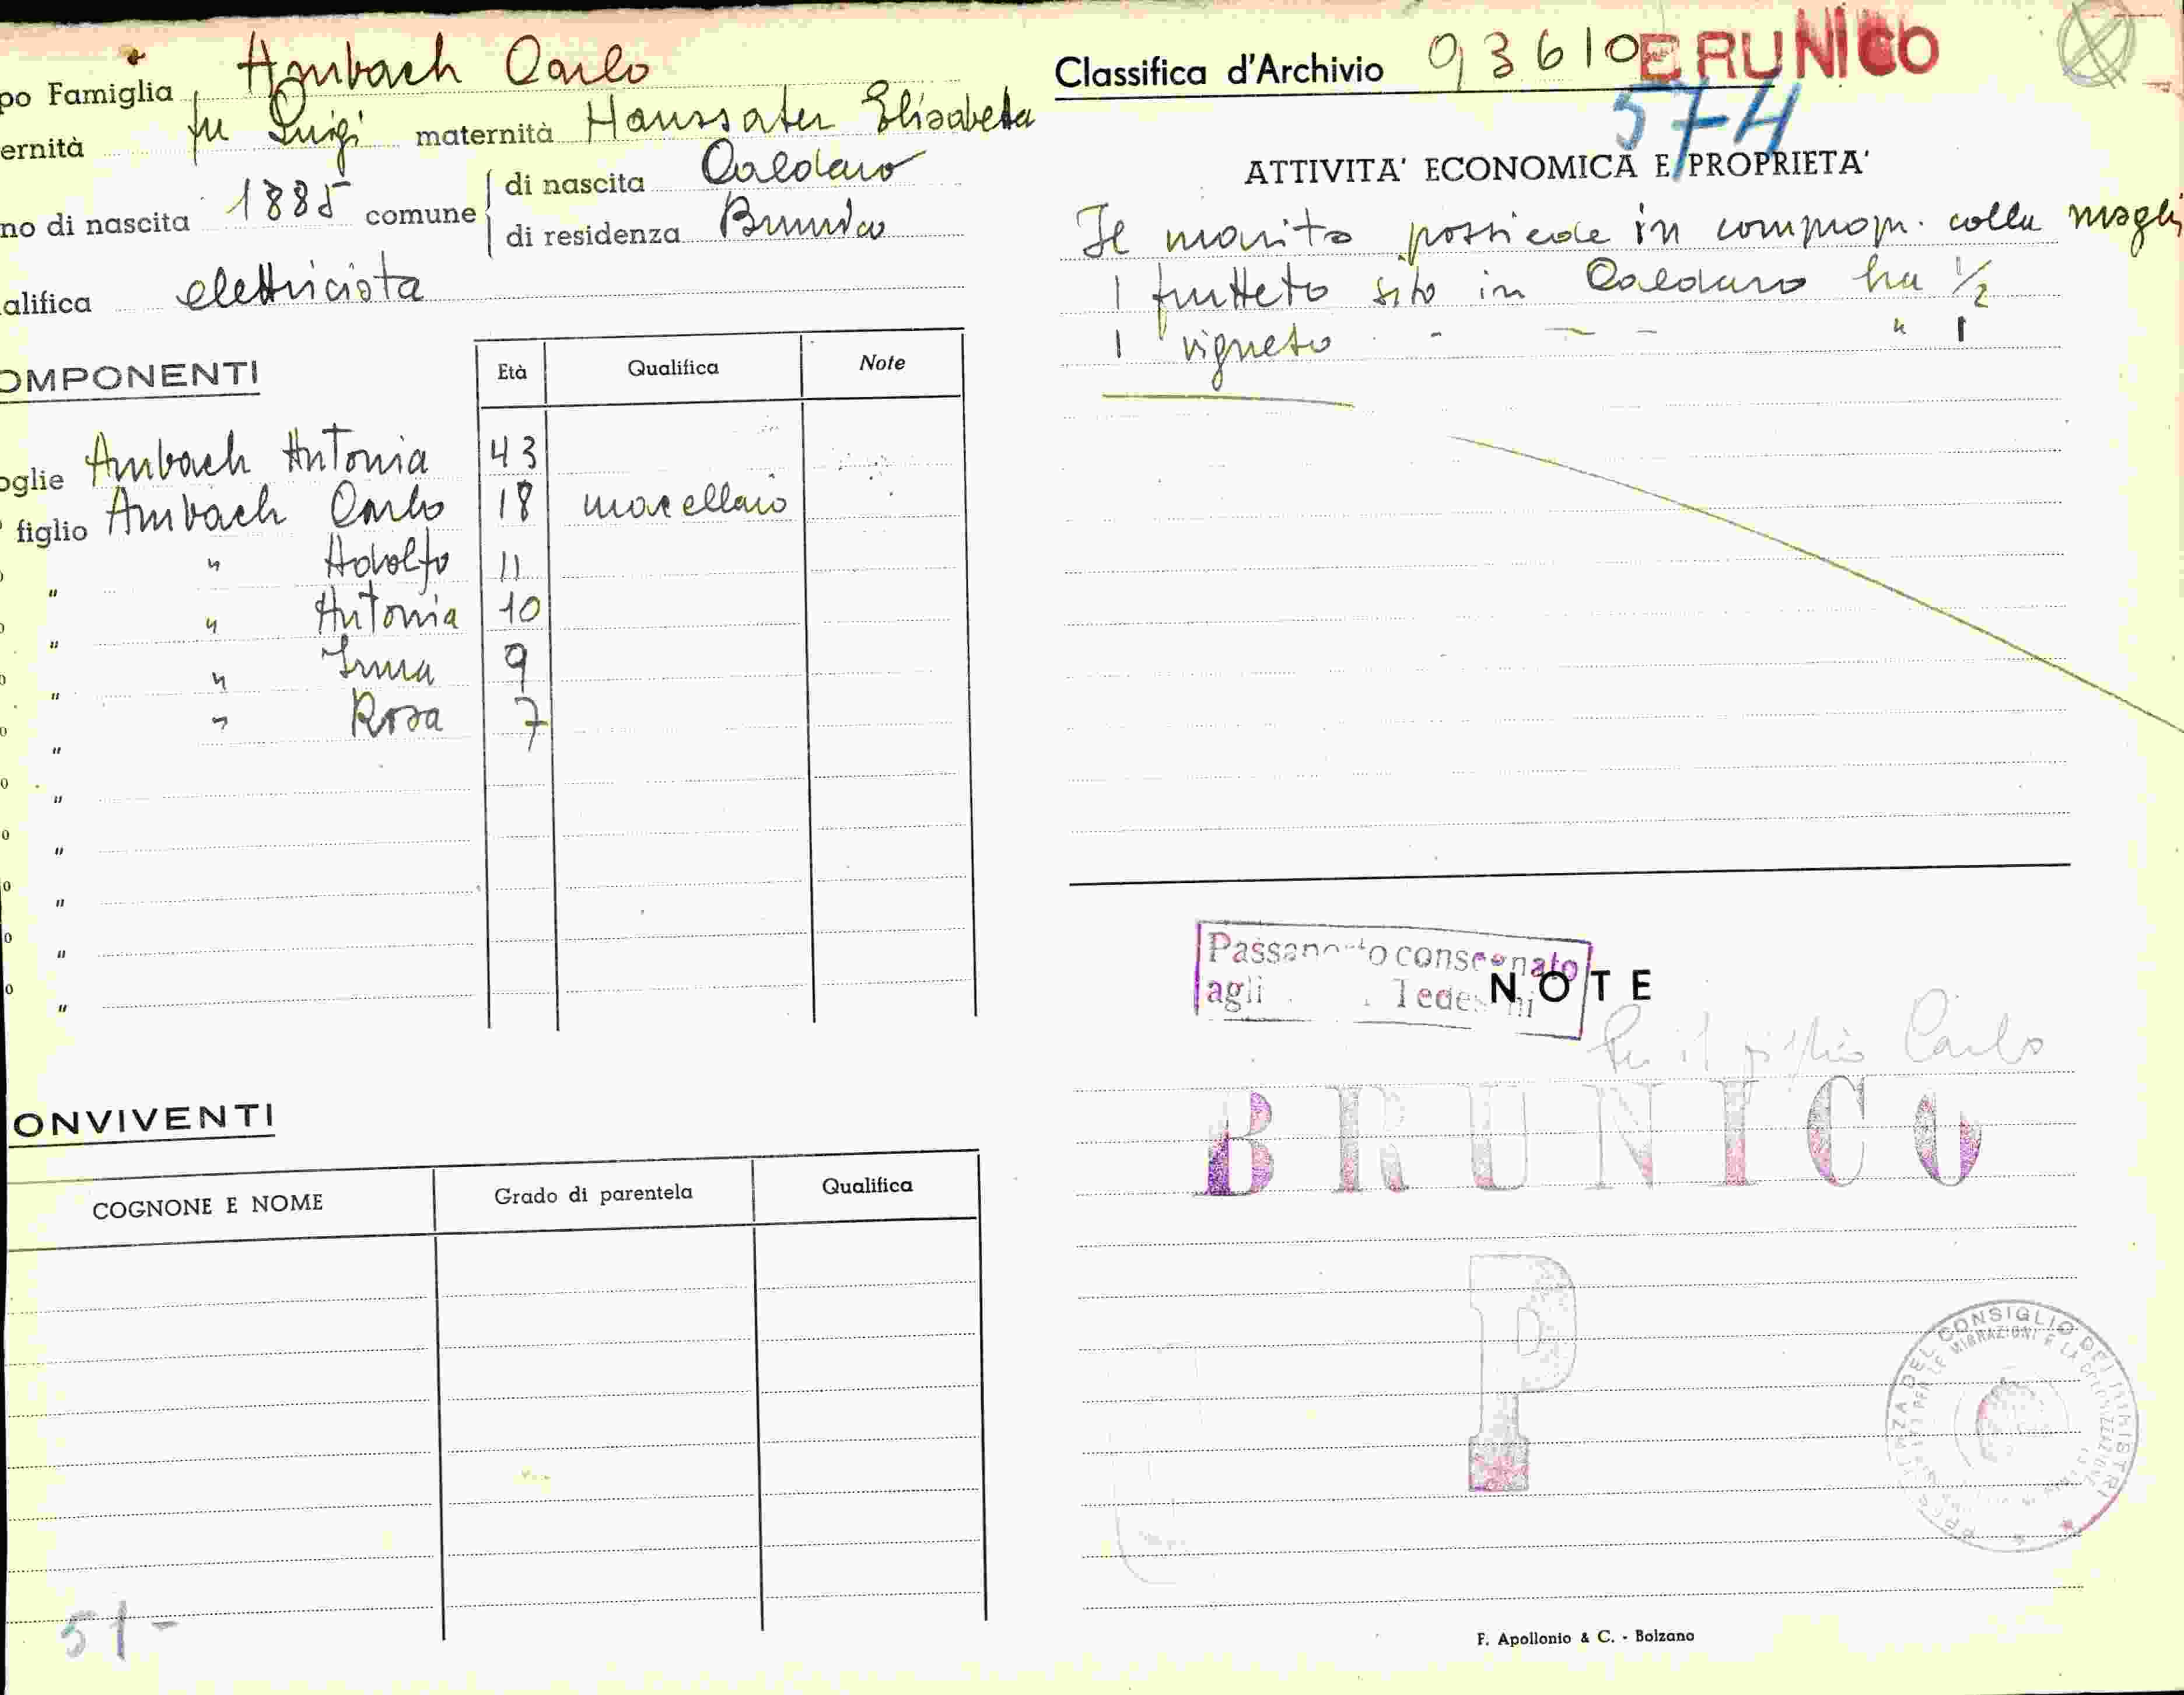 po Famiglia Ambach Carlo
ernità fu Luigi maternità Haussater Elisabeta
no di nascita 1885 comune di nascita Caldaro
di residenza Brunico
alifica elettricista
OMPONENTI Età Qualifica Note
oglie Ambach Antonia 43
figlio Ambach Carlo 18 macellaio
" " Adolfo 11
" " Antonia 10
" " Irma 9
" " Rosa 7
"
"
"
"
"
"
ONVIVENTI
COGNONE E NOME Grado di parentela Qualifica
51-
Classifica d'Archivio 93610 BRUNICO
574
ATTIVITA' ECONOMICA E PROPRIETA'
Il marito possiede in comprop. colla mogli
1 frutteto sito in Caldaro ha 1/2
1 vigneto - - - " 1
Passaporto consegnato
agli Tedeschi
NOTE
Per il figlio Carlo
BRUNICO
P
CONSIGLIO DEI MINISTRI
MIGRAZIONI E LA COLONIZZAZIONE
F. Apollonio & C. - Bolzano